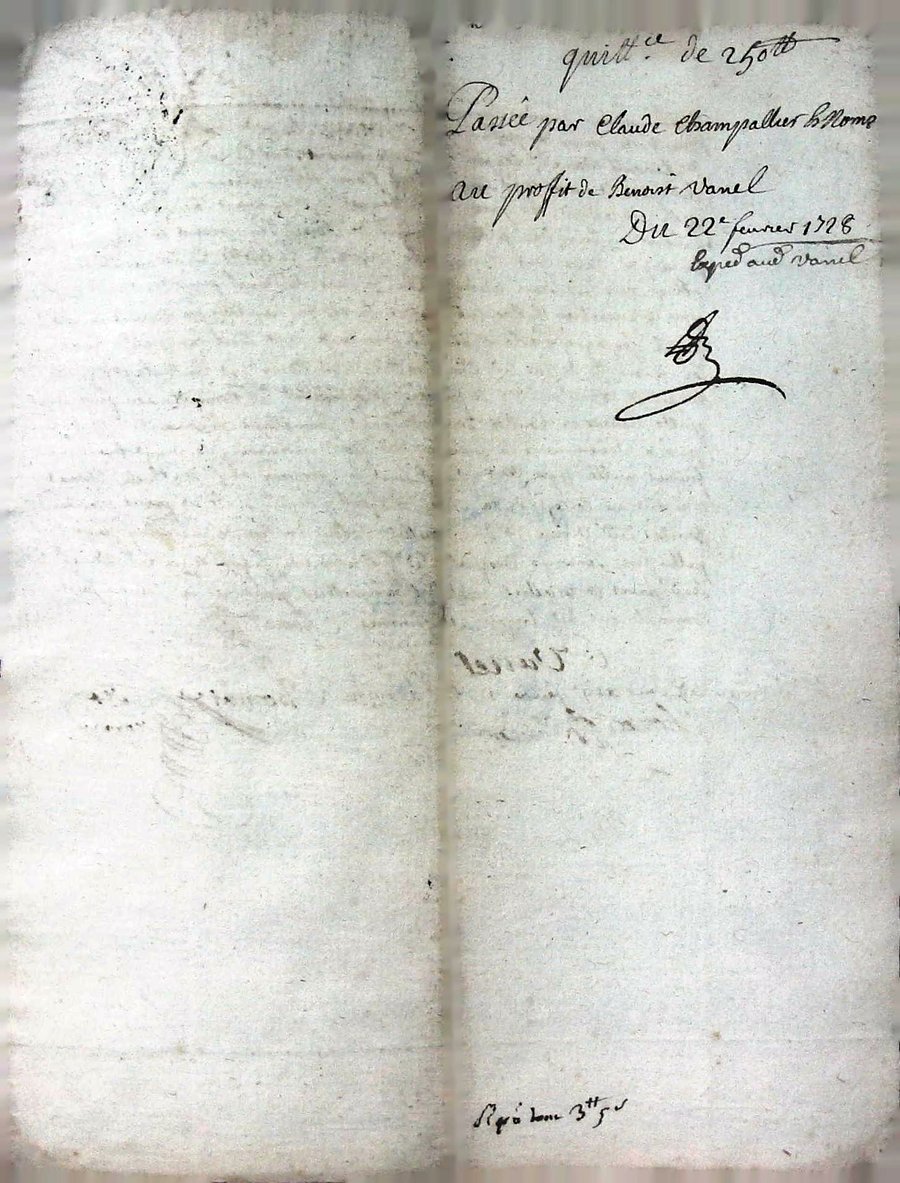 quitt.ce de 250tt
Passée par Claude Champallier h Nome
au proffit de Benoist Vanel
Du 22e fevrier 1728
Exped aud Vanel
3tt 5s